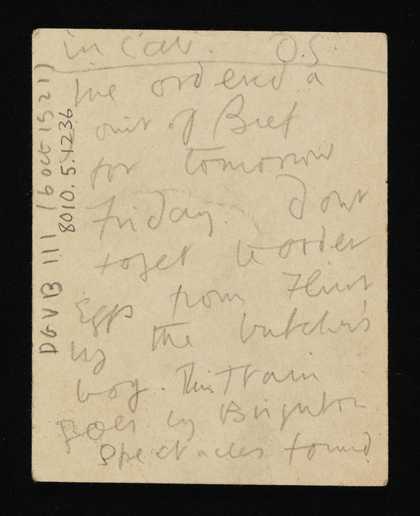 in Car. O.S.
ordered a
of Beef
for tomorrow
Friday. Dont
forget to order
Eggs from Flint
by the butcher's
boy. This Train
goes by Brighton
Spectacles found
DGVB 111 (6 oct 1921)
8010.5.1236